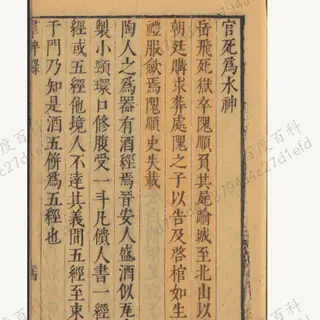 官死爲水神
岳飛死獄卒隗順負其屍踰城至北山以
朝廷購求葬處隗之子以告及啓棺如生
禮服歛焉隗順史失載
陶人之爲器有酒經焉晉安人盛酒似瓦
製小頸環口修腹受一斗凡饋人書一經
經或五經他境人不達其義聞五經至束
于門乃知是酒五缾爲五經也
錄
度百科
c27d1efd